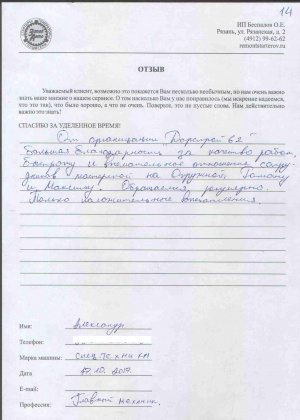 14
ИП Беспалов О.Е.
Рязань, ул. Рязанская, д. 2
(4912) 99-62-62
remontstarterov.ru
ОТЗЫВ
Уважаемый клиент, возможно это покажется Вам несколько необычным, но нам очень важно
знать ваше мнение о нашем сервисе. О том насколько Вам у нас понравилось (мы искренне надеемся,
что это так), что было хорошо, а что не очень. Поверьте, это не пустые слова. Нам действительно
важно это знать!
СПАСИБО ЗА УДЕЛЕННОЕ ВРЕМЯ!
От организации "Дорстрой 62"
большая благодарность за качество работ,
быстроту и внимательное отношение сотру-
дников мастерской на Окружной, Роману
и Максиму. Обращаемся регулярно.
Только положительные впечатления.
Имя: Александр
Телефон:
Марка машины: спецтехника
Дата 17.10.2017.
E-mail:
Профессия: Главный механик.